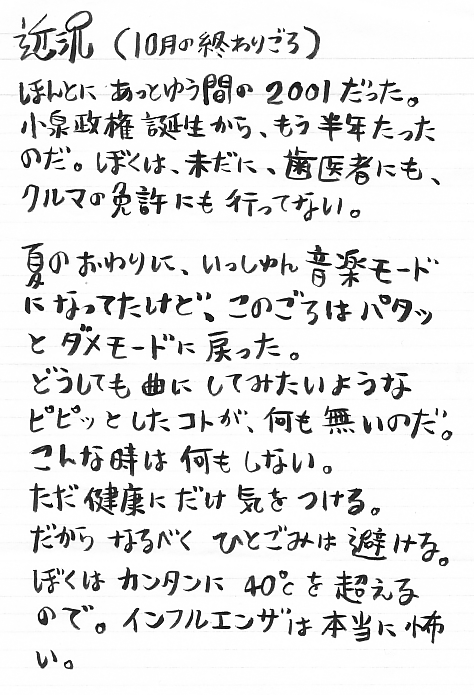 近況（10月の終わりごろ）
ほんとに あっとゆう間の 2001だった。
小泉政権誕生から、もう半年たった
のだ。ぼくは、未だに、歯医者にも、
クルマの免許にも行ってない。
夏のおわりに、いっしゅん音楽モード
になってたけど、このごろはパタッ
とダメモードに戻った。
どうしても曲にしてみたいような
ピピッとしたコトが、何も無いのだ。
こんな時は何もしない。
ただ健康にだけ気をつける。
だから なるべく ひとごみは避ける。
ぼくは カンタンに 40℃を超える
ので。インフルエンザは本当に怖
い。